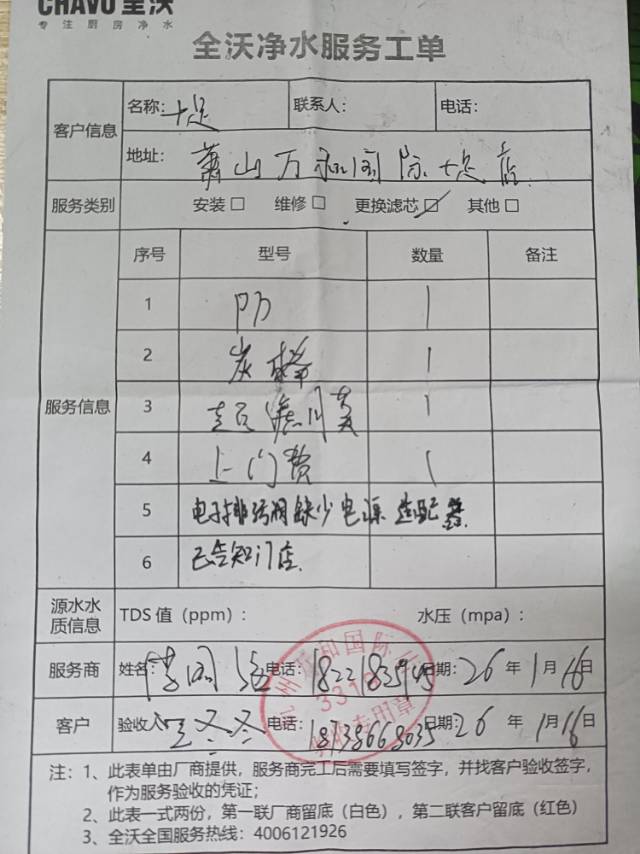 CHAVO全沃
专注厨房净水
全沃净水服务工单
客户信息
名称：十足
联系人：
电话：
地址：萧山万和国际十足店
服务类别
安装□ 维修□ 更换滤芯☑ 其他□
服务信息
序号 型号 数量 备注
1 PP 1
2 炭棒 1
3 1
4 上门费 1
5 电子排污阀缺少电源适配器
6 已告知门店
源水水质信息
TDS 值（ppm）： 水压（mpa）：
服务商 姓名： 李 电话： 日期：26年1月16日
客户 验收人 王冬冬 电话：18738668035 日期：26年1月16日
注：1、此表单由厂商提供，服务商完工后需要填写签字，并找客户验收签字，
作为服务验收的凭证；
2、此表一式两份，第一联厂商留底（白色），第二联客户留底（红色）
3、全沃全国服务热线：4006121926